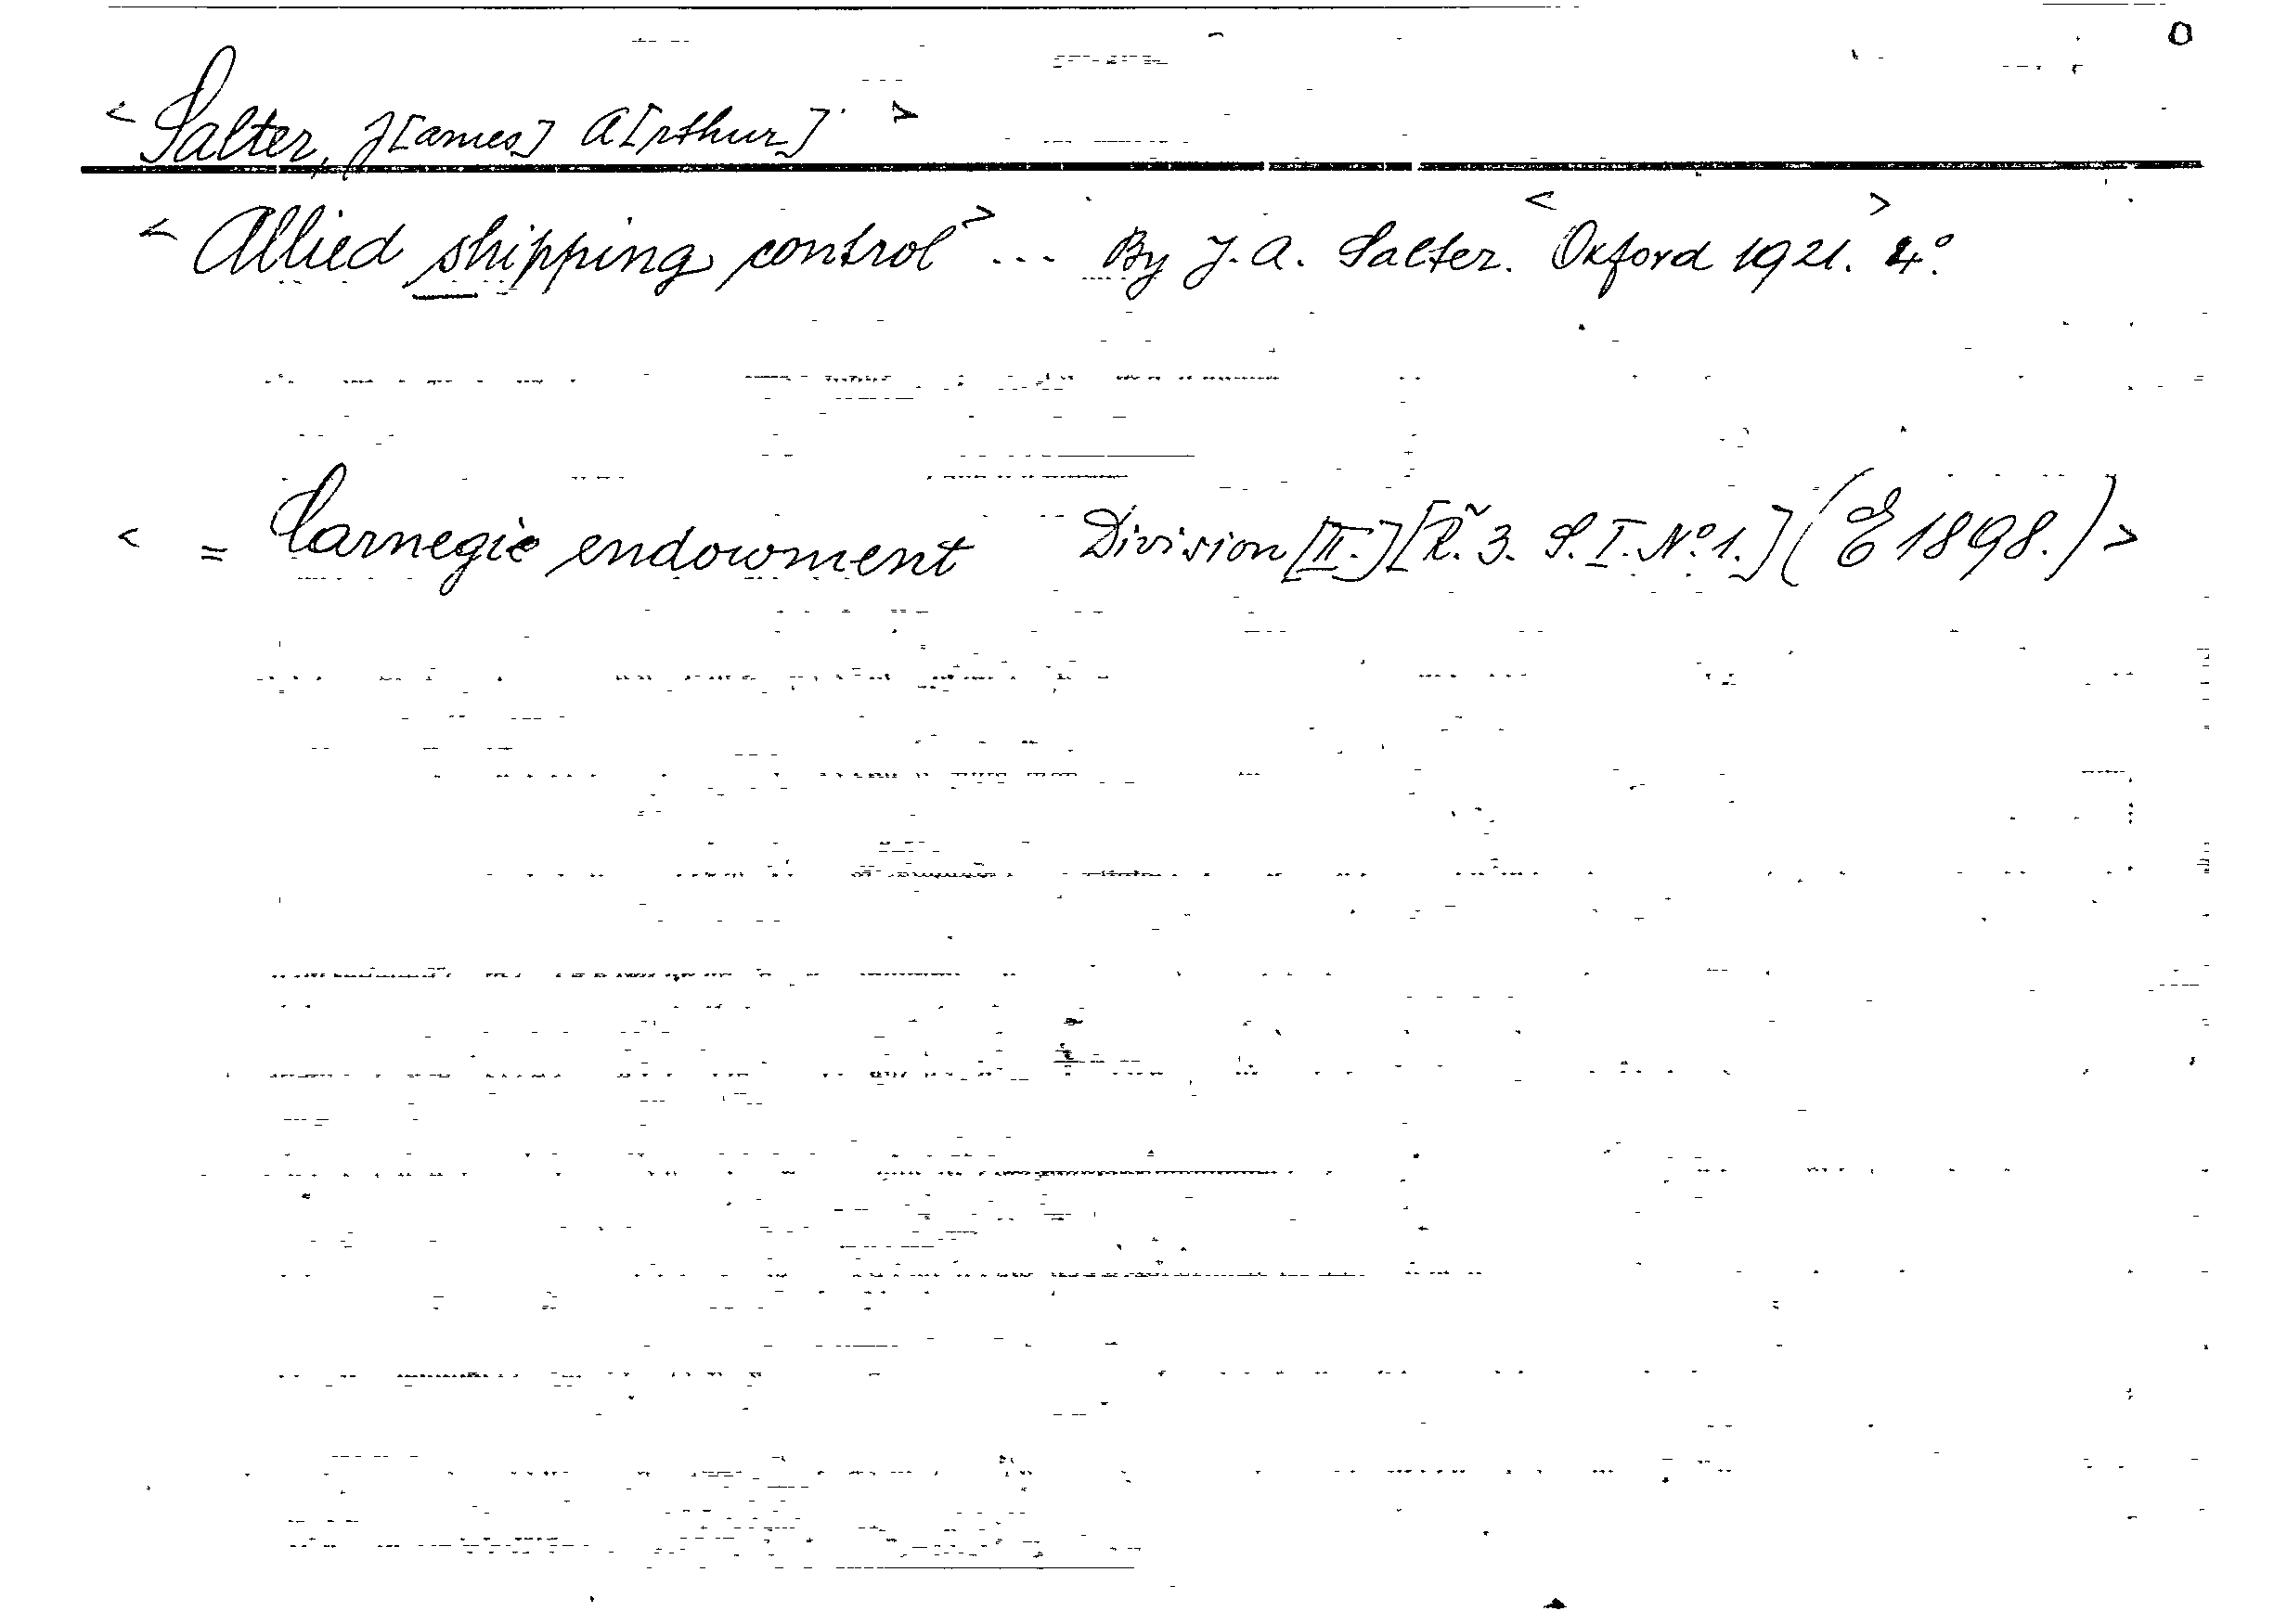 < Salter, J[ames] A[rthur] >
< Allied shipping control > ... By J. A. Salter. < Oxford 1921. > 4°.
< = Carnegie endowment Division [II.] [R̃. 3. S. I. No. 1.] (E 1898.) >